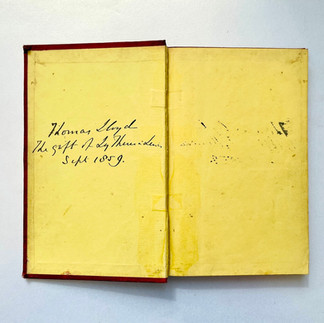 Thomas Lloyd
The gift of Ly Theresa Lewis
Sept 1859.